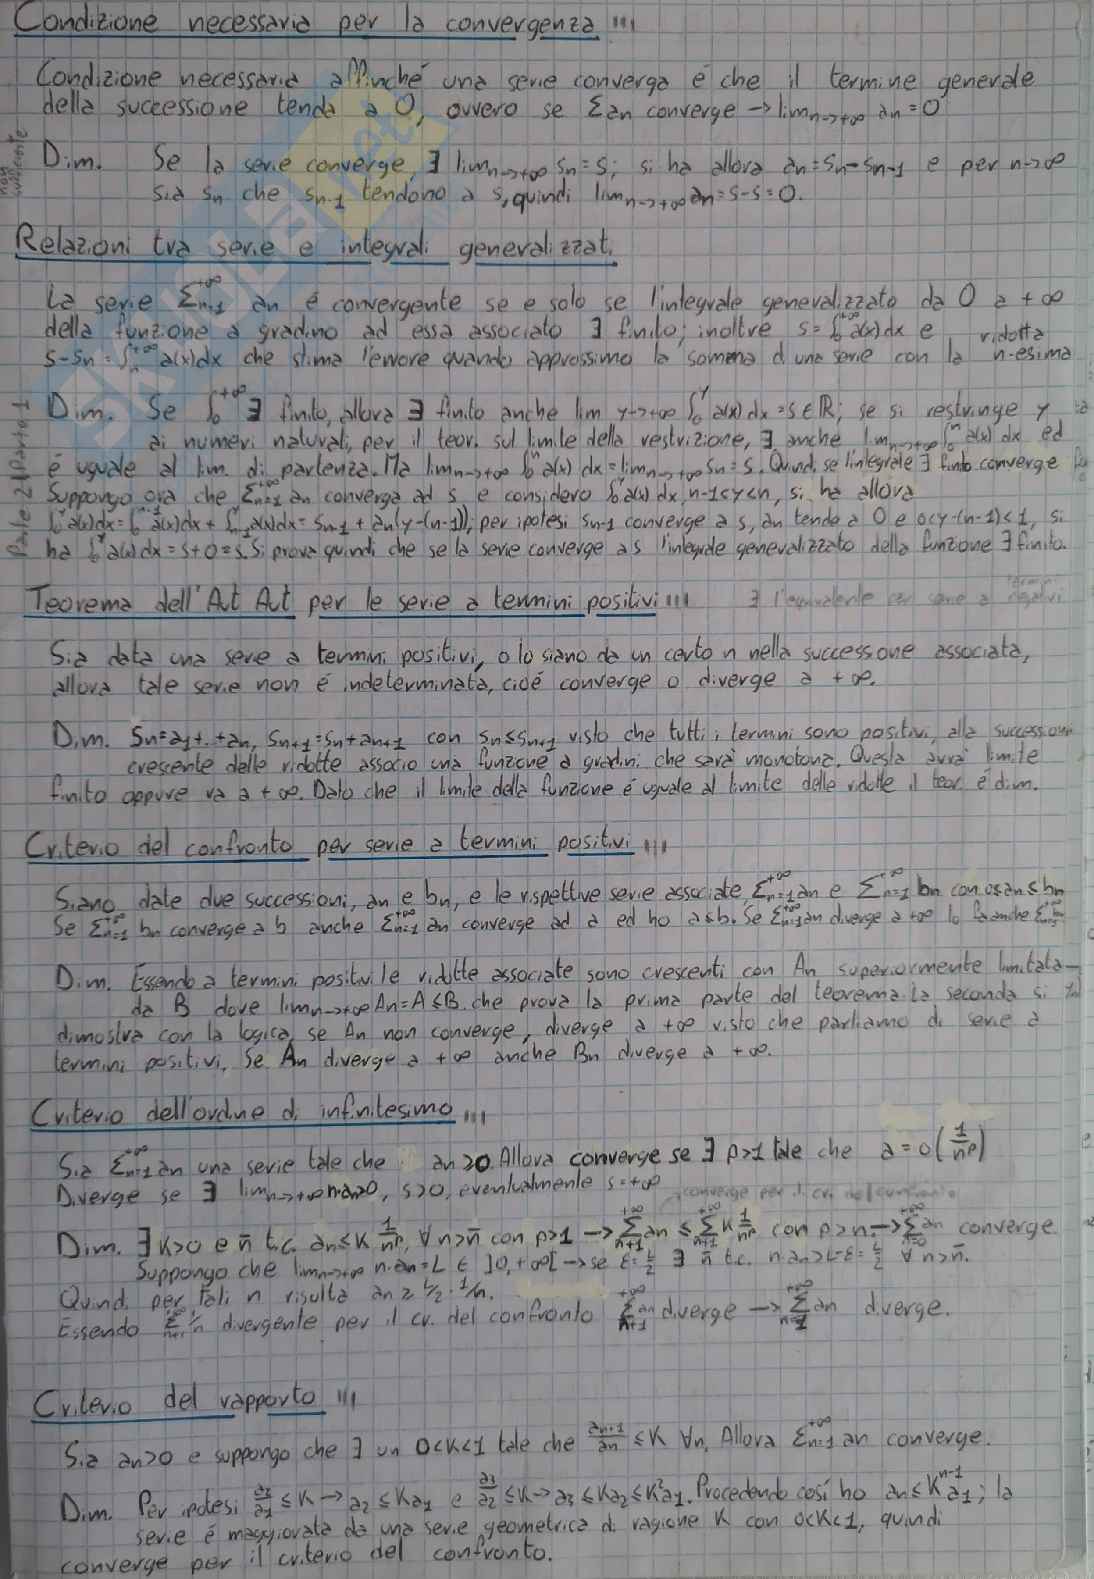 Condizione necessaria per la convergenza !!!
Condizione necessaria affinché una serie converga é che il termine generale
della successione tenda a 0, ovvero se Σan converge → lim n→+∞ an = 0
non sufficiente
Dim. Se la serie converge, ∃ lim n→+∞ sn = s; si ha allora an = sn - sn-1 e per n→∞
sia sn che sn-1 tendono a s, quindi lim n→+∞ an = s-s = 0.
Relazioni tra serie e integrali generalizzati
La serie Σ+∞ n=1 an é convergente se e solo se l'integrale generalizzato da 0 a +∞
della funzione a gradino ad essa associato ∃ finito; inoltre s = ∫0+∞ a(x)dx e
s-sn = ∫n+∞ a(x)dx che stima l'errore quando approssimo la somma di una serie con la ridotta n-esima
Parte 2 | Parte 1
Dim. Se ∫0+∞ ∃ finito, allora ∃ finito anche lim y→+∞ ∫0y a(x)dx = s ∈ ℝ; se si restringe y
ai numeri naturali, per il teor. sul limite della restrizione, ∃ anche lim n→+∞ ∫0n a(x) dx ed
é uguale al lim. di partenza. Ma lim n→+∞ ∫0n a(x) dx = lim n→+∞ sn = s. Quindi se l'integrale ∃ finito converge
Suppongo ora che Σ+∞ n=1 an converga ad s e considero ∫0y a(x) dx, n-1<y<n, si ha allora
∫0y a(x)dx = ∫0n-1 a(x)dx + ∫n-1y a(x)dx = sn-1 + an(y-(n-1)); per ipotesi sn-1 converge a s, an tende a 0 e 0<y-(n-1)≤1, si
ha ∫0y a(x)dx = s+0 = s. Si prova quindi che se la serie converge a s l'integrale generalizzato della funzione ∃ finito.
Teorema dell'Aut Aut per le serie a termini positivi !!! ∃ l'equivalente per serie a termini negativi
Sia data una serie a termini positivi, o lo siano da un certo n nella successione associata,
allora tale serie non é indeterminata, cioé converge o diverge a +∞.
Dim. Sn = a1+..+an, Sn+1 = Sn + an+1 con sn ≤ sn+1 visto che tutti i termini sono positivi, alla successione
crescente delle ridotte associo una funzione a gradini che sarà monotona. Questa avrà limite
finito oppure va a +∞. Dato che il limite della funzione é uguale al limite delle ridotte il teor. é dim.
Criterio del confronto per serie a termini positivi !!!
Siano date due successioni, an e bn, e le rispettive serie associate, Σ+∞ n=1 an e Σ+∞ n=1 bn con 0≤an≤bn
Se Σ+∞ n=1 bn converge a b anche Σ+∞ n=1 an converge ad a ed ho a≤b. Se Σ+∞ n=1 an diverge a +∞ lo fa anche Σ+∞ n=1 bn
Dim. Essendo a termini positivi le ridotte associate sono crescenti con An superiormente limitata
da B dove lim n→+∞ An = A ≤ B. che prova la prima parte del teorema. La seconda si
dimostra con la logica, se An non converge, diverge a +∞ visto che parliamo di serie a
termini positivi. Se An diverge a +∞ anche Bn diverge a +∞.
Criterio dell'ordine di infinitesimo !!!
Sia Σ+∞ n=1 an una serie tale che an>0. Allora converge se ∃ p>1 tale che a = o(1/n^p)
Diverge se ∃ lim n→+∞ n·an>0, s>0, eventualmente s=+∞
converge per il cr. del confronto
Dim. ∃ K>0 e n̄ t.c. an ≤ K 1/n^p, ∀ n>n̄ con p>1 → Σ+∞ n+1 an ≤ Σ+∞ n+1 K 1/n^p con p>n → Σ+∞ n=0 an converge.
Suppongo che lim n→+∞ n·an = L ∈ ]0,+∞[ → se ε = L/2 ∃ n̄ t.c. n·an > L-ε = L/2 ∀ n>n̄.
Quindi per tali n risulta an ≥ L/2 · 1/n.
Essendo Σ+∞ n+1 1/n divergente per il cr. del confronto Σ+∞ n+1 an diverge → Σ+∞ n=1 an diverge.
Criterio del rapporto !!!
Sia an>0 e suppongo che ∃ un 0<K<1 tale che an+1/an ≤ K ∀n. Allora Σ+∞ n=1 an converge.
Dim. Per ipotesi a2/a1 ≤ K → a2 ≤ Ka1 e a3/a2 ≤ K → a3 ≤ Ka2 ≤ K²a1. Procedendo così ho an ≤ K^n-1 a1; la
serie é maggiorata da una serie geometrica di ragione K con 0<K<1, quindi
converge per il criterio del confronto.